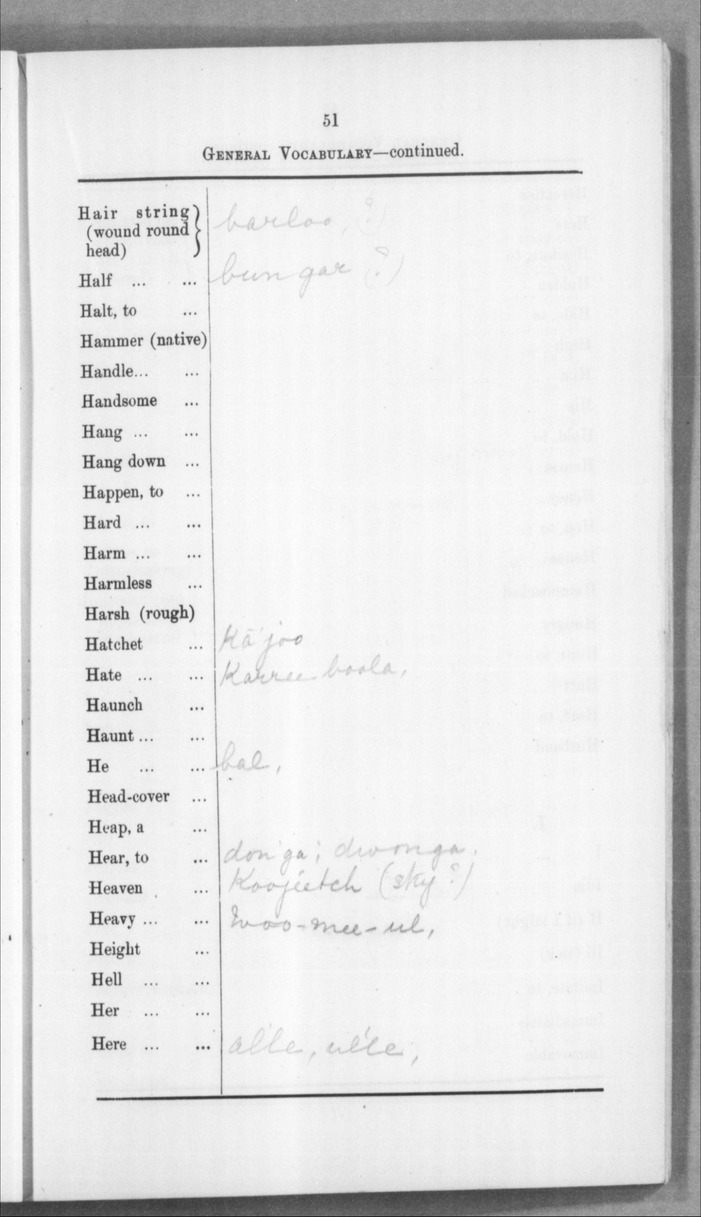 51
GENERAL VOCABULARY—continued.
Hair string
(wound round
head) barloo, (?)
Half ... ... bungar (?)
Halt, to ...
Hammer (native)
Handle... ...
Handsome ...
Hang ... ...
Hang down ...
Happen, to ...
Hard ... ...
Harm ... ...
Harmless ...
Harsh (rough)
Hatchet ... Kā'joo
Hate ... ... Karree boola,
Haunch ...
Haunt ... ...
He ... ... bal,
Head-cover ...
Heap, a ...
Hear, to ... don'ga; dwonga.
Heaven ... Koojeetch (sky?)
Heavy ... ... woo-mee-ul,
Height ...
Hell ... ...
Her ... ...
Here ... ... al'le, ul'le,